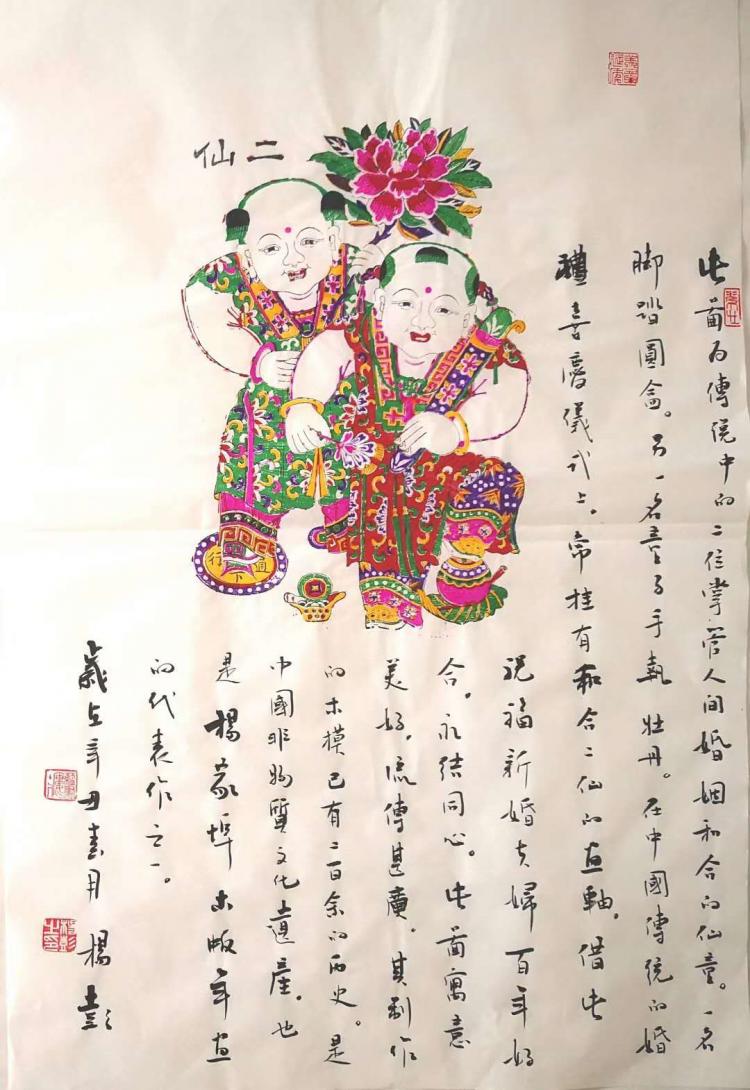 二仙
此啚为傳说中的二位掌管人间婚姻和合的仙童。一名
脚踏圓盒。另一名童子手執牡丹。在中國傳統的婚
禮喜慶儀式上，常挂有和合二仙的画軸，借此
祝福新婚夫婦百年好
合，永结同心。此啚寓意
美好，流傳甚廣。其制作
的木模已有二百余的历史。是
中國非物質文化遺産。也
是楊家埠木版年画
的代表作之一。
歲在辛丑春月 楊彭
通行下